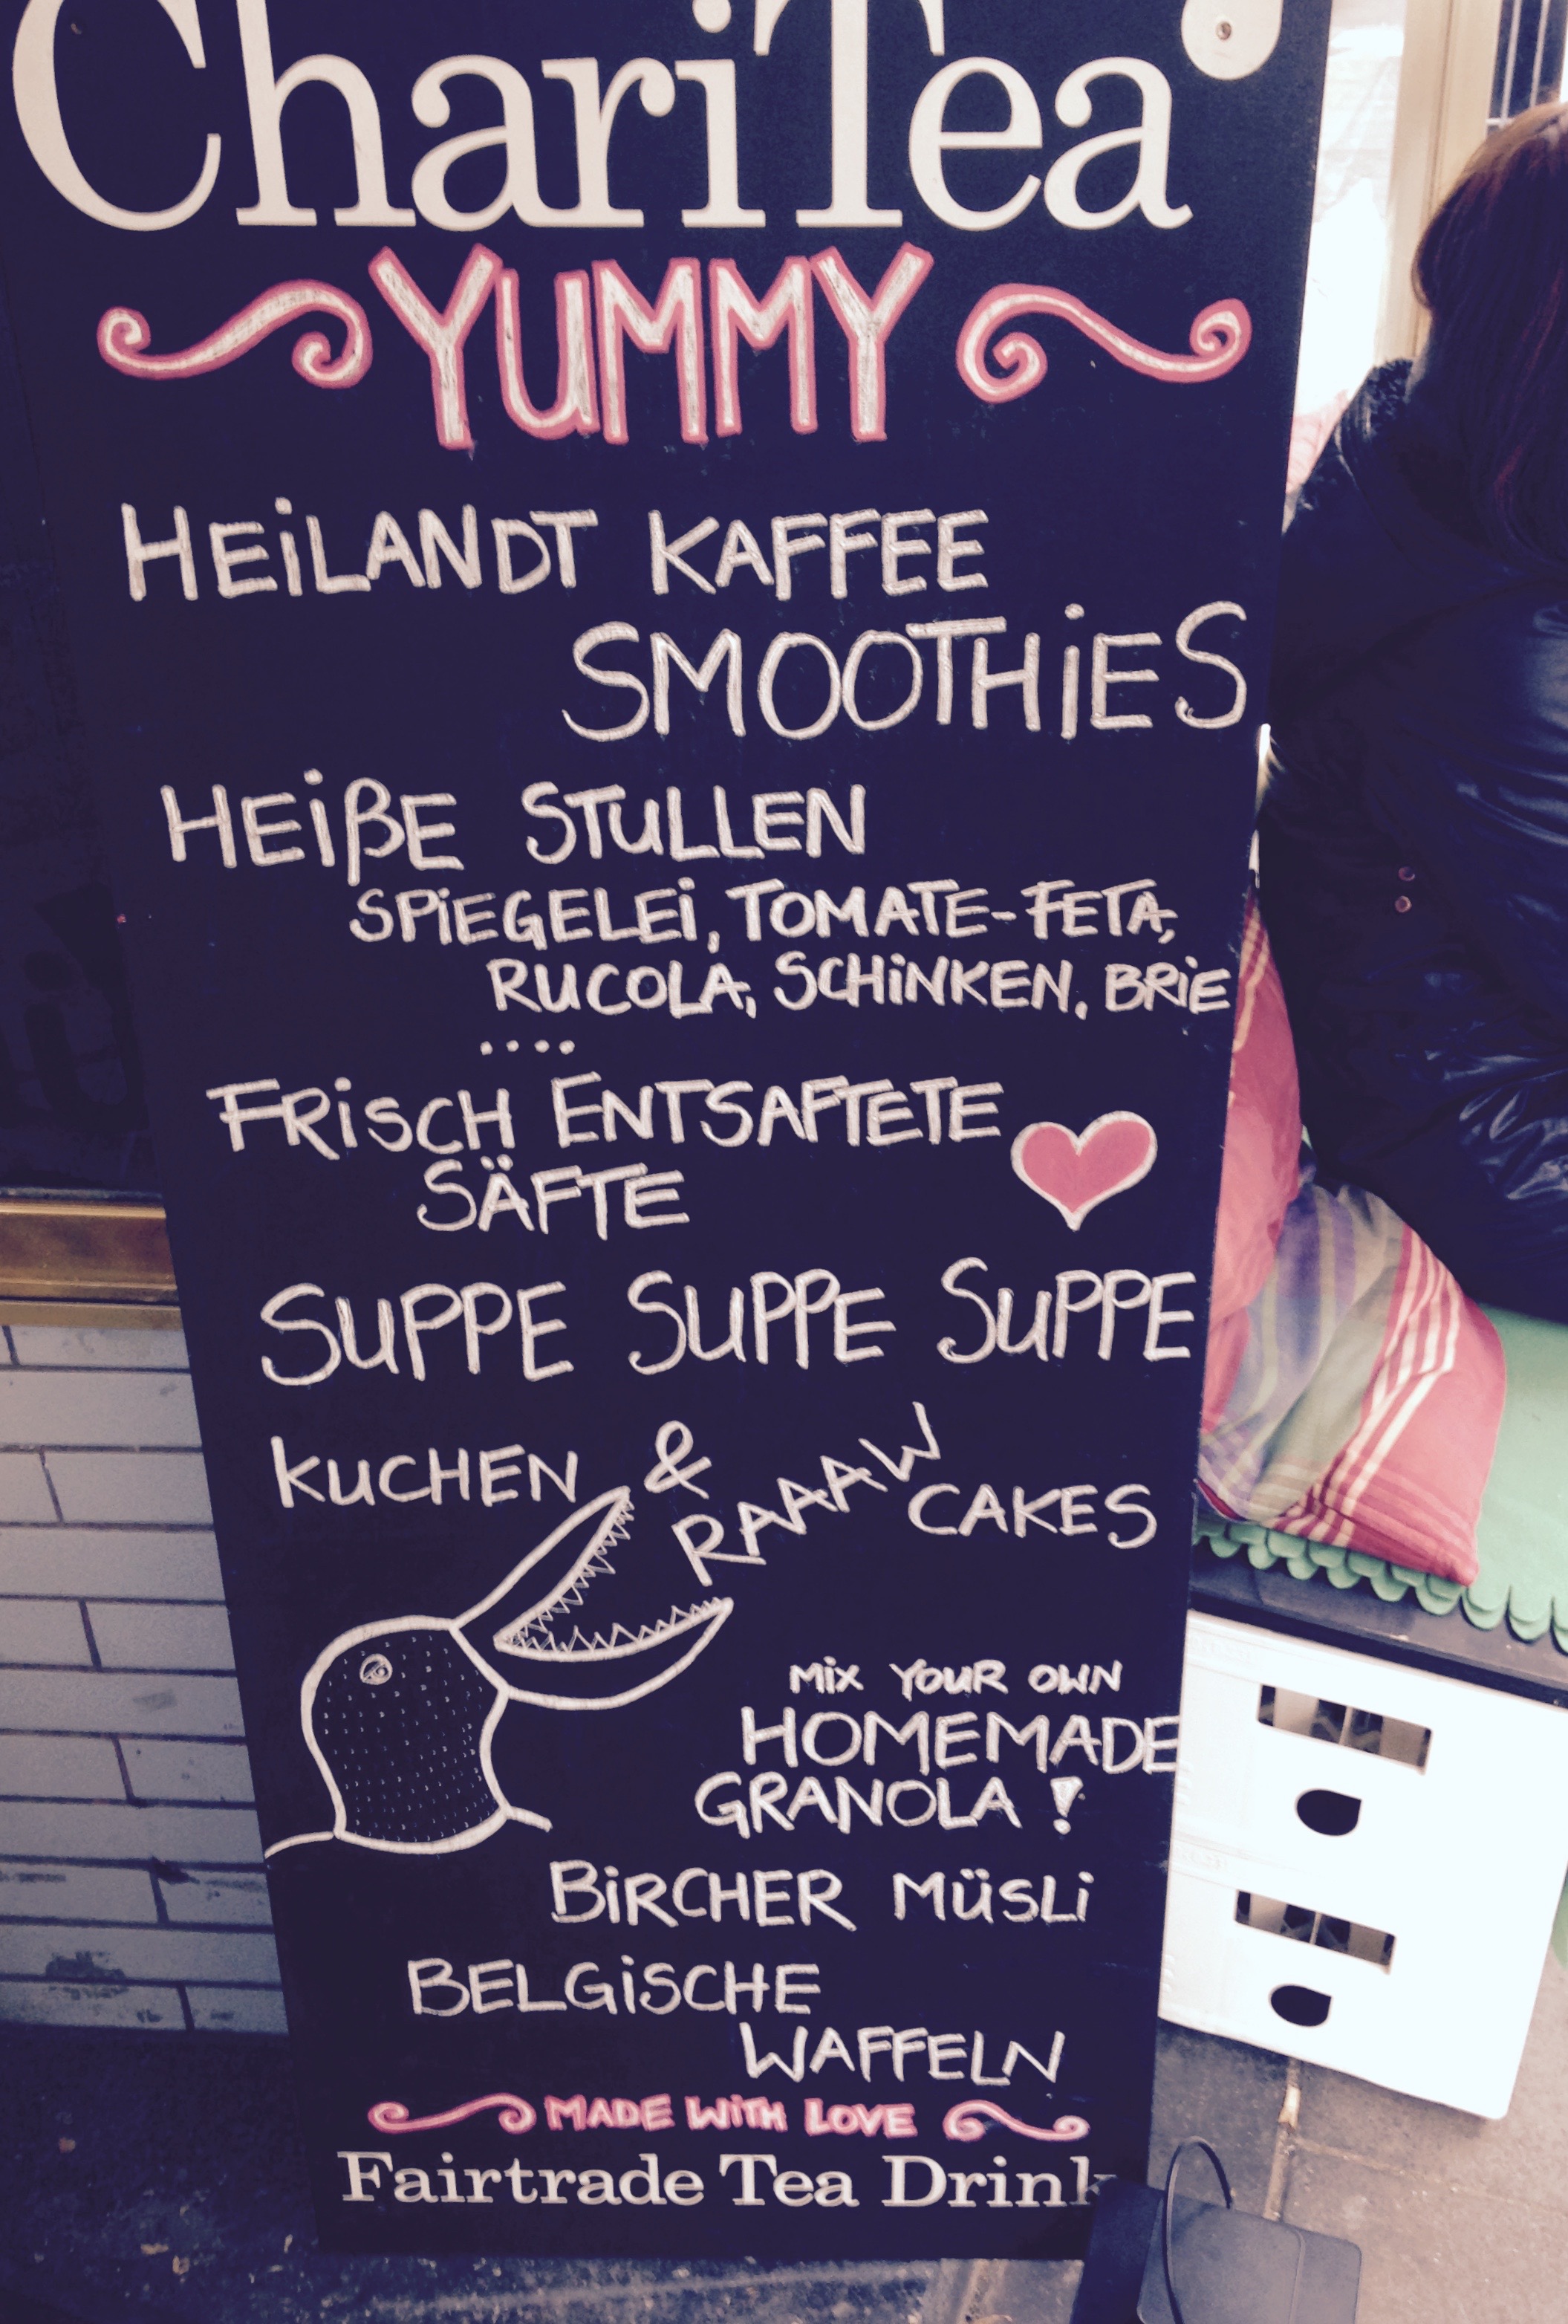 ChariTea
YUMMY
HEiLANDT KAFFEE
SMOOTHiES
HEißE STULLEN
SPiEGELEi, TOMATE-FETA,
RUCOLA, SCHiNKEN, BRiE
....
FRiSCH ENTSAFTETE
SÄFTE
SUPPE SUPPE SUPPE
KUCHEN &
RAAAW
CAKES
MiX YOUR OWN
HOMEMADE
GRANOLA !
BiRCHER MÜSLi
BELGiSCHE
WAFFELN
MADE WiTH LOVE
Fairtrade Tea Drink